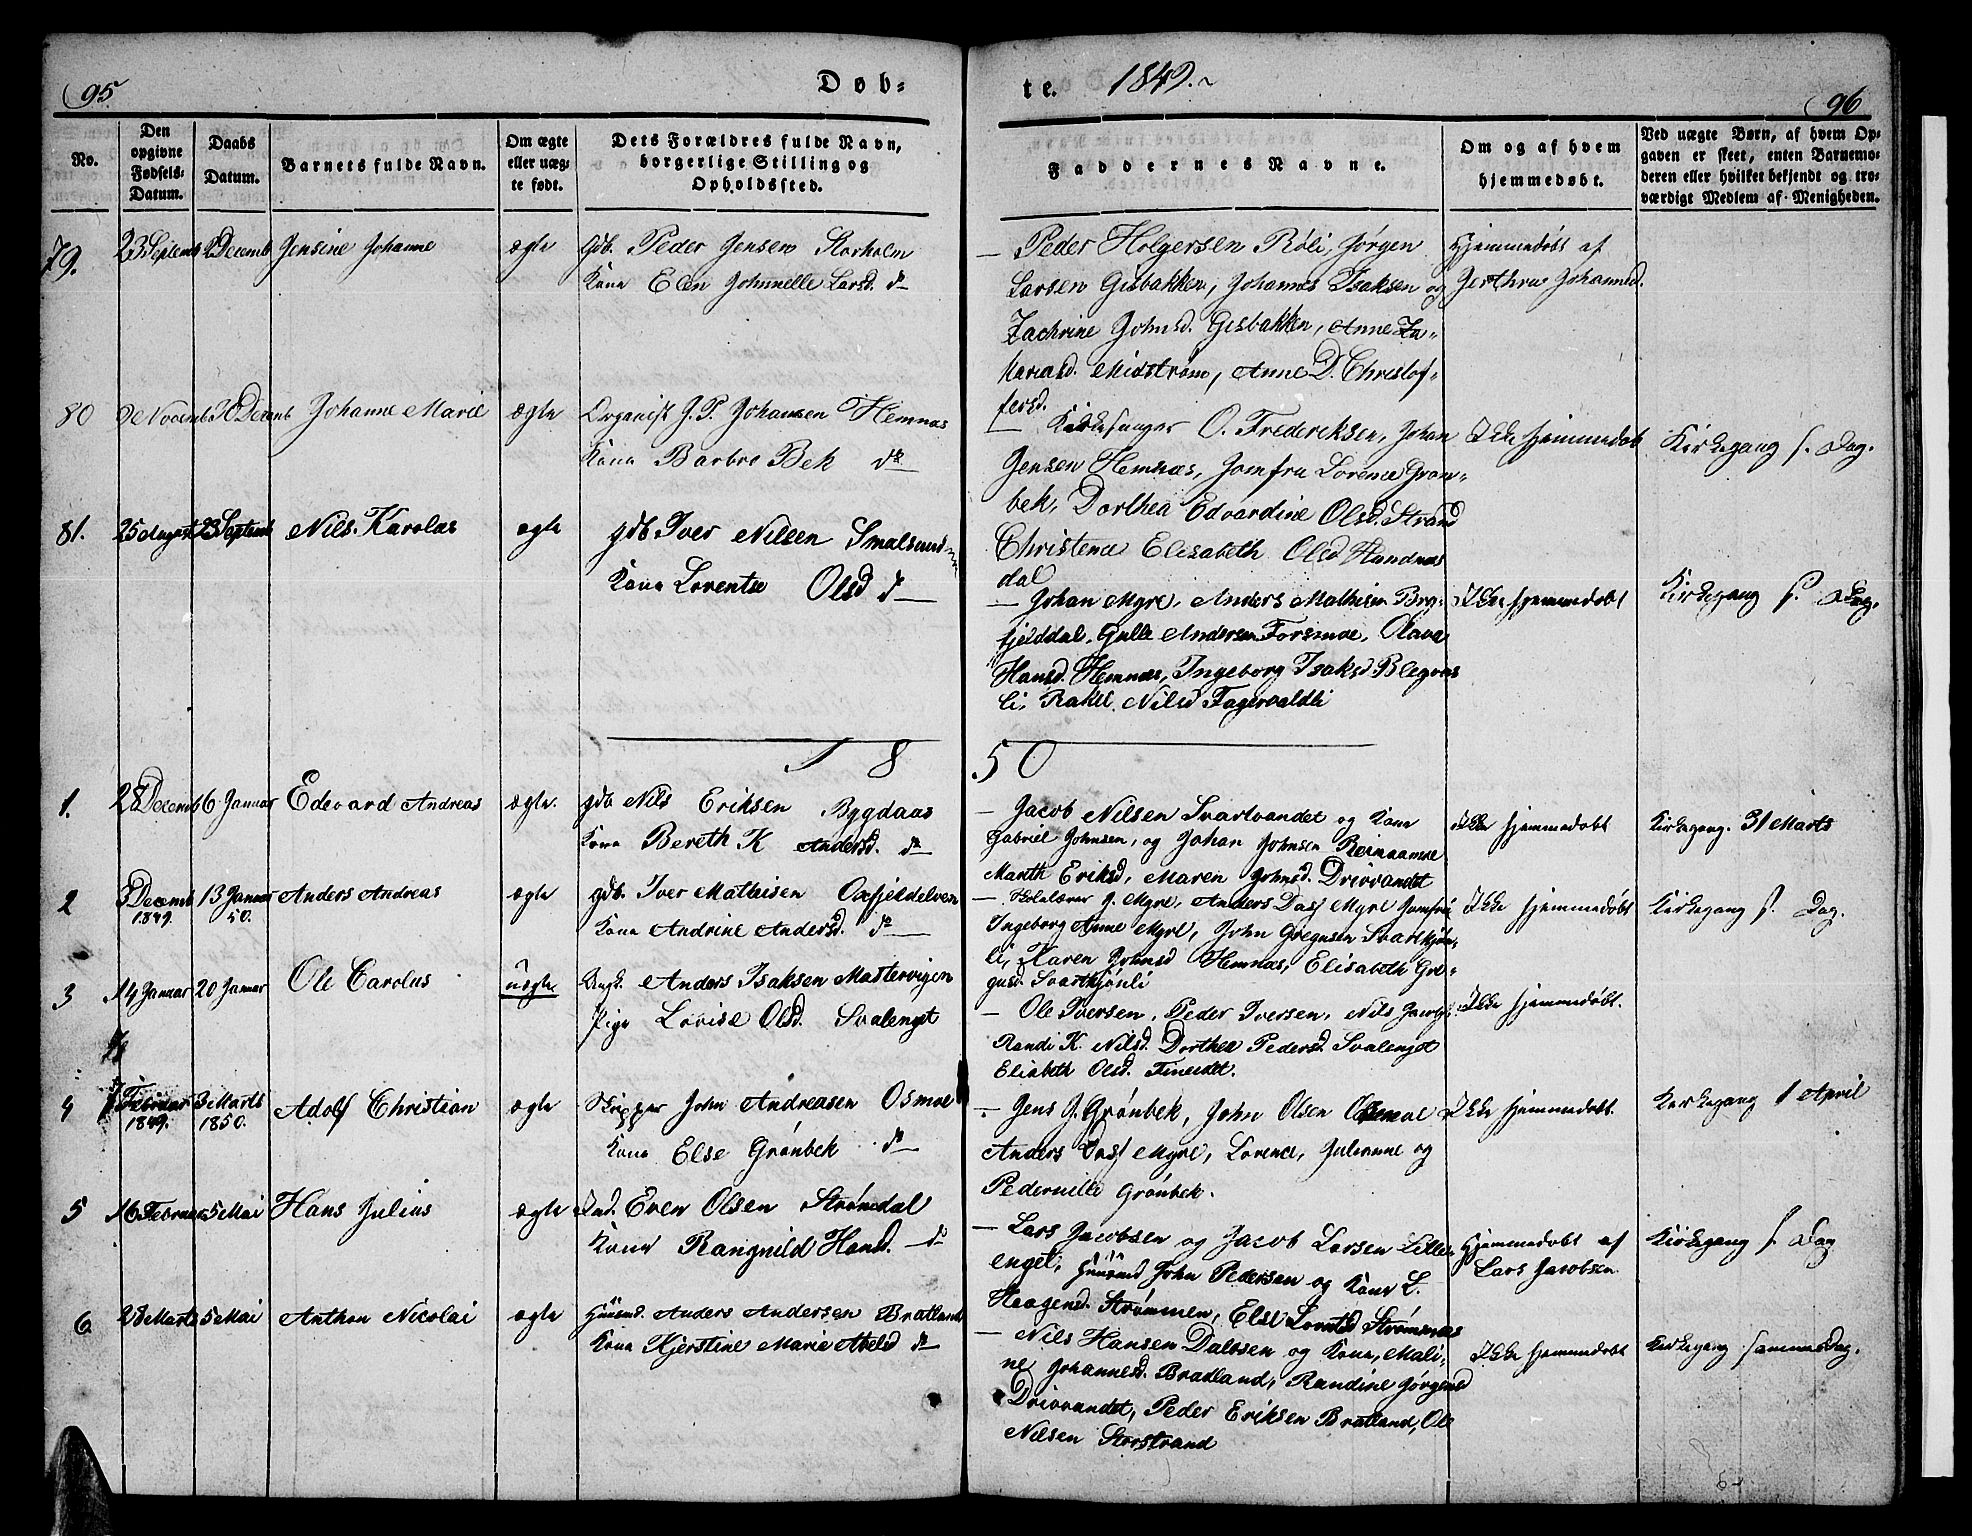 95
Døb-
te.
1849.
96
No.
Den opgivne Fødsels-Datum.
Daabs Datum.
Barnets fulde Navn.
Om ægte eller uæg-te født.
Dets Forældres fulde Navn, borgerlige Stilling og Opholdssted.
Faddernes Navne.
Om og af hvem hjemmedøbt.
Ved uægte Børn, af hvem Op-gaven er skeet, enten Barnemo-deren eller hvilket bekjendt og tro-værdigt Medlem af Menigheden.
79. 23 Septemb Decemb Jensine Johanne ægte Gdb. Peder Jensen Storholm
Kone Elen Johnnelle Larsd. do
Peder Holgersen Røli, Jørgen
Larsen Gisbakken, Johannes Isaksen og
Zachrine Johnsd. Gisbakken, Anne Za-
kariasd. Midstrøm, Anne D. Christof-
fersd.
Hjemmedøbt af
Johannesd.
80 Novemb Decemb Johanne Marie ægte Organist J. P. Johansen Hemnæs
Kone Barbro Bek do
Kirkesanger O. Frederiksen, Johan
Jensen Hemnæs, Jomfru Lorence Grøn-
bek, Dorthea Edvardine Olsd. Strand
Christence Elisabeth Olsd Handnæs
dal
Ikke hjemmedøbt
Kirkegang s. Dag.
81. 25 August 23 Septemb Nils Karolus ægte gdb Iver Nilsen Smalsund
Kone Lorentse Olsd do
Johan Myre, Anders Mathisen Byg-
fjelddal, Gulle Andersen Forsmoe, Olava
Hansd. Hemnæs, Ingeborg Isaksd Blegvas
li, Rakel Nilsd Fagervaldli
Ikke hjemmedøbt
Kirkegang s. Dag.
1850
1. 28 Decemb 6 Januar Edevard Andreas ægte. gdb Nils Eriksen Bygdaas
Kone Bereth K Andersd. do
Jacob Nilsen Svartvandet og Kone
Gabriel Johnsen, og Johan Johnsen Reinaamoe
Marith Eriksd, Maren Johnsd. Drivvandet
Ikke hjemmedøbt
Kirkegang. 31 Marts
2 3 Decemb 1849. 13 Januar 50. Anders Andreas ægte gdb. Iver Mathisen Oxfjeldelven
Kone Andrine Andersd. do
Skolelærer J. Myre, Anders Dass Myre Jomfru
Ingeborg Anne Myre, John Gregusen Svartkjøn-
li, Karen Johnsd Hemnæs, Elisabeth Gre-
gusd. Svartkjønli
Ikke hjemmedøbt
Kirkegang s. Dag.
3 14 Januar 20 Januar Ole Carolus uægte Ungk. Anders Isaksen Mastervigen
Pige Lovise Olsd. Svalenget
Ole Iversen, Peder Iversen, Nils
Randi K. Nilsd. Dorthea Pedersd. Svalenget
Elisbeth Olsd. Fineidet.
Ikke hjemmedøbt.
4 7 Februar 1849. 3 Marts 1850. Adolf Christian ægte Skipper John Andreasen Osmoe
Kone Else Grønbek do
Jens J. Grønbek, John Olsen Osmoe
Anders Dass Myre, Lorence, Julianne og
Pedernille Grønbek.
Ikke hjemmedøbt.
Kirkegang 1 April
5 16 Februar 5 Mai Hans Julius ægte Ind. Even Olsen Strømdal
Kone Rangnild Hansd. do
Lars Jacobsen og Jacob Larsen Lille
enget, Huusmd John Pedersen og Kone L.
Haagensd. Strømmen, Else Lorntsd Strømsnæs
Hjemmedøbt af
Lars Jacobsen
Kirkegang s. Dag
6 28 Marts 5 Mai Anthon Nicolai ægte Huusmd. Anders Andersen Bratland
Kone Kjerstine Marie Abelsd do
Nils Hansen Dalosen og Kone, Mali-
ne Johannesd. Bratland, Randine Jørgensd
Drivvandet, Peder Eriksen Bratland, Ole
Nilsen Storstrand
Ikke hjemmedøbt
Kirkegang sammedag.